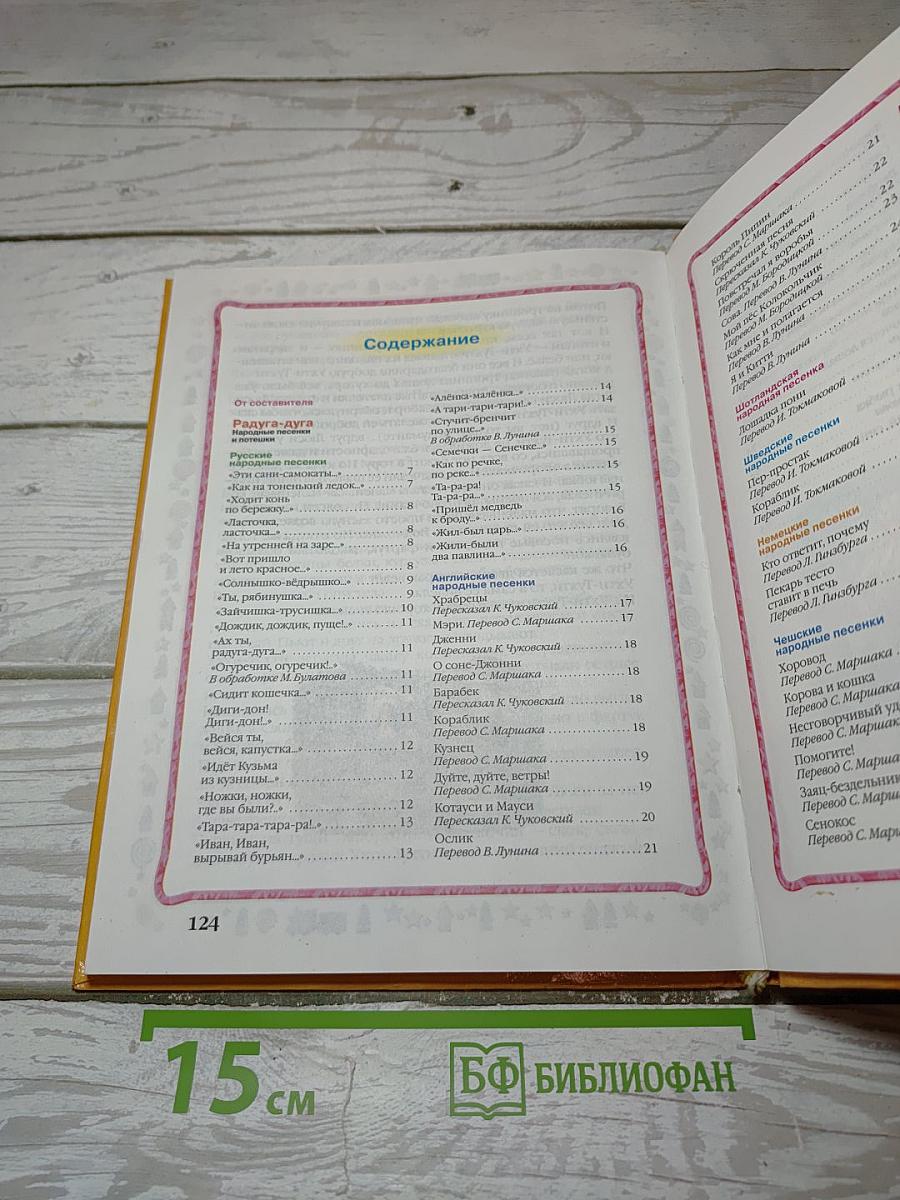 Содержание
От составителя
Радуга-дуга
Народные песенки
и потешки
Русские
народные песенки
«Эти сани-самокаты...» 7
«Как на тоненький ледок...» 7
«Ходит конь
по бережку...» 8
«Ласточка,
ласточка...» 8
«На утренней на заре...» 8
«Вот пришло
и лето красное...» 8
«Солнышко-вёдрышко...» 9
«Ты, рябинушка...» 9
«Зайчишка-трусишка...» 10
«Дождик, дождик, пуще!..» 11
«Ах ты,
радуга-дуга...» 11
«Огуречик, огуречик!..»
В обработке М. Булатова 11
«Сидит кошечка...» 11
«Диги-дон!
Диги-дон!..» 11
«Вейся ты,
вейся, капустка...» 12
«Идёт Кузьма
из кузницы...» 12
«Ножки, ножки,
где вы были?..» 12
«Тара-тара-тара-ра!..» 13
«Иван, Иван,
вырывай бурьян...» 13
«Алёнка-малёнка...» 14
«А тари-тари-тари!..» 14
«Стучит-бренчит
по улице...»
В обработке В. Лунина 15
«Семечки — Сенечке...» 15
«Как по речке,
по реке...» 15
«Та-ра-ра!
Та-ра-ра...» 15
«Пришёл медведь
к броду...» 16
«Жил-был царь...» 16
«Жили-были
два павлина...» 16
Английские
народные песенки
Храбрецы
Пересказал К. Чуковский 17
Мэри. Перевод С. Маршака 17
Дженни
Пересказал К. Чуковский 18
О соне-Джонни
Перевод С. Маршака 18
Барабек
Пересказал К. Чуковский 18
Кораблик
Перевод С. Маршака 18
Кузнец
Перевод С. Маршака 19
Дуйте, дуйте, ветры!
Перевод С. Маршака 19
Котауси и Мауси
Пересказал К. Чуковский 20
Ослик
Перевод В. Лунина 21
124
Король Пипин
Перевод С. Маршака 21
Скрюченная песня
Пересказал К. Чуковский 22
Повстречал я воробья
Перевод М. Бородицкой 22
Сова. Перевод В. Лунина 23
Мой пёс Колокольчик
Перевод М. Бородицкой 24
Как мне и полагается
Перевод В. Лунина
Я и Китти
Перевод В. Лунина
Шотландская
народная песенка
Лошадка пони
Перевод И. Токмаковой
Шведские
народные песенки
Пер-простак
Перевод И. Токмаковой
Кораблик
Перевод И. Токмаковой
Немецкие
народные песенки
Кто ответит, почему
Перевод Л. Гинзбурга
Пекарь тесто
ставит в печь
Перевод Л. Гинзбурга
Чешские
народные песенки
Хоровод
Перевод С. Маршака
Корова и кошка
Перевод С. Маршака
Несговорчивый
Перевод С. Маршака
Помогите!
Перевод С. Марша
Заяц-бездельник
Перевод С. Марш
Сенокос
Перевод С. Мар
15 см
БФ БИБЛИОФАН